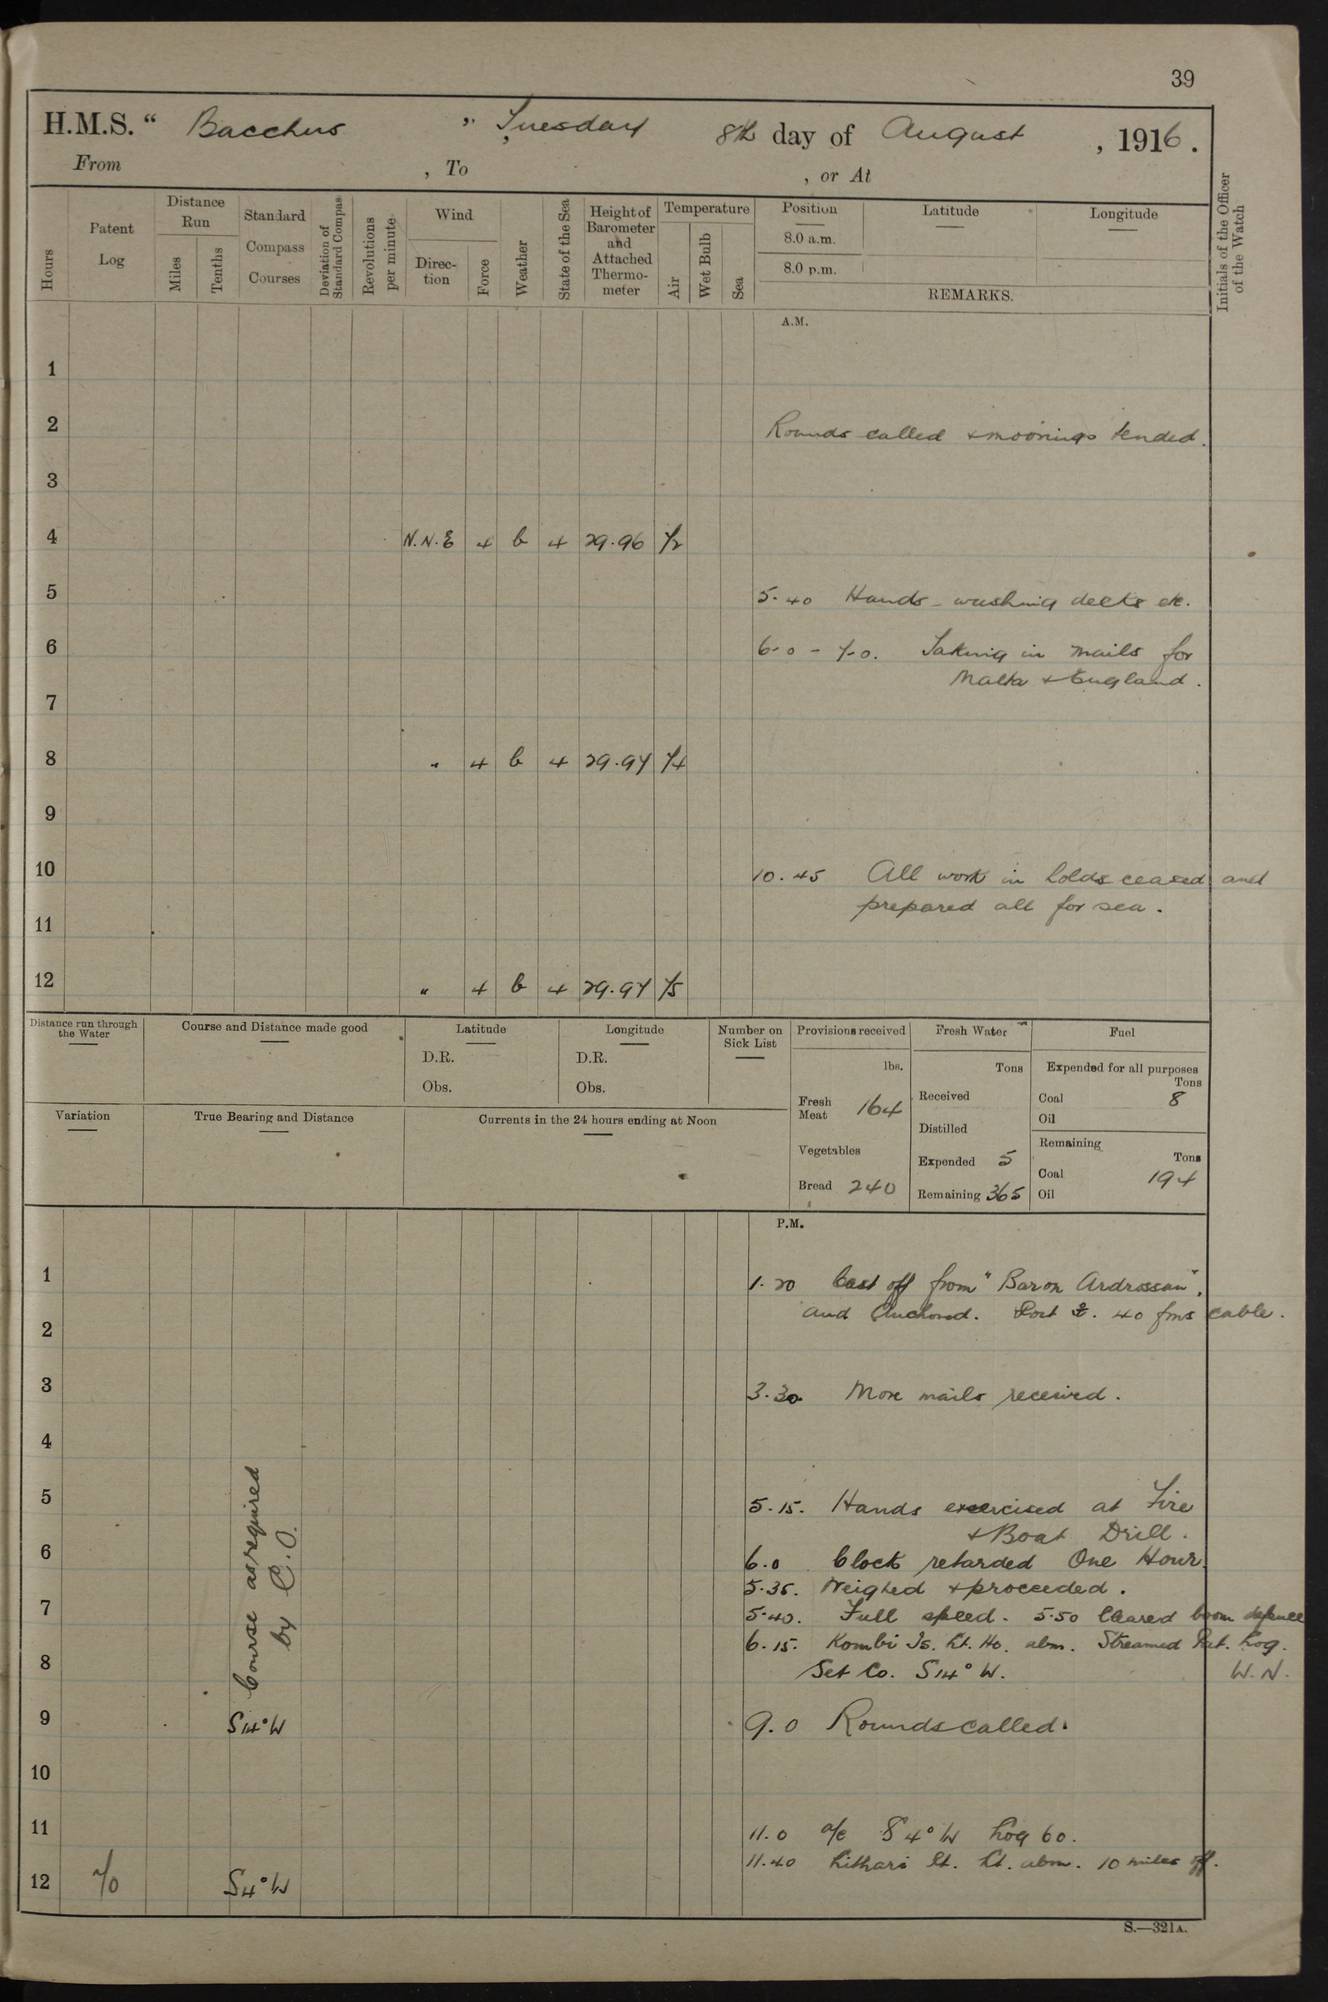 39
H.M.S. “ Bacchus ” Tuesday 8th day of August , 1916 .
From , To , or At
Hours
Patent Log
Distance Run
Miles
Tenths
Standard Compass Courses
Deviation of Standard Compass
Revolutions per minute
Wind
Direction
Force
Weather
State of the Sea
Height of Barometer and Attached Thermo-meter
Temperature
Air
Wet Bulb
Sea
Position
Latitude
Longitude
8.0 a.m.
8.0 p.m.
REMARKS.
Initials of the Officer of the Watch
A.M.
1
2 Rounds called & moorings tended.
3
4 N.N.E 4 b 4 29.96 72
5 5.40 Hands washing decks etc.
6 6-0 - 7-0. Taking in mails for
Malta & England.
7
8 " 4 b 4 29.97 74
9
10 10.45 All work in holds ceased and
prepared all for sea.
11
12 " 4 b 4 29.97 75
Distance run through the Water
Course and Distance made good
Latitude
D.R.
Obs.
Longitude
D.R.
Obs.
Number on Sick List
Provisions received
lbs.
Fresh Meat 164
Vegetables
Bread 240
Fresh Water
Tons
Received
Distilled
Expended 5
Remaining 365
Fuel
Expended for all purposes
Tons
Coal 8
Oil
Remaining
Tons
Coal 194
Oil
Variation
True Bearing and Distance
Currents in the 24 hours ending at Noon
P.M.
1 1.20 Cast off from "Baron Ardrossan",
and Anchored. Port 40 fms cable.
2
3 3.30 More mails received.
4
5 5.15. Hands exercised at Fire
& Boat Drill.
6 6.0 Clock retarded One Hour.
5.35. Weighed & proceeded.
7 5.40. Full speed. 5.50 Cleared boom defence
6.15. Kombi Is. Lt. Ho. abm. Streamed Pat. Log.
8 Set Co. S14°W. W.N.
Course as required
by C.O.
9 S14°W 9.0 Rounds called.
10
11 11.0 a/c S 4°W Log 60.
11.40 Lithari Lt. abm. 10 miles off.
12 70 S4°W
S.—321A.